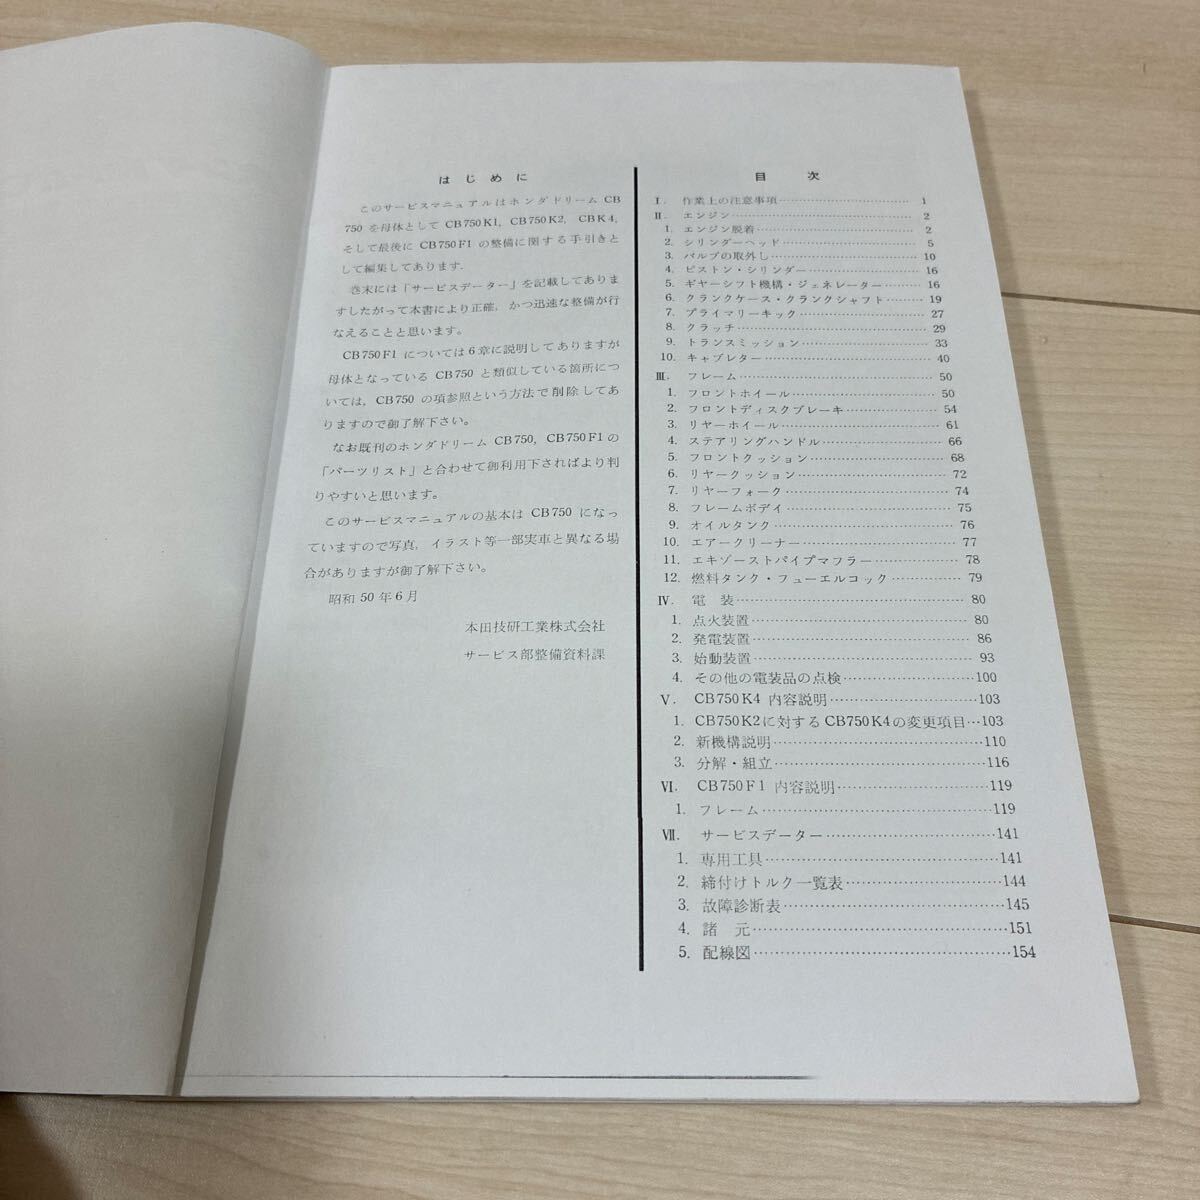 はじめに
このサービスマニュアルはホンダドリームCB
750を母体としてCB750K1, CB750K2, CBK4,
そして最後にCB750F1の整備に関する手引きと
して編集してあります.
巻末には「サービスデーター」を記載してありま
すしたがって本書により正確, かつ迅速な整備が行
なえることと思います。
CB750F1については6章に説明してありますが
母体となっているCB750と類似している箇所につ
いては, CB750の項参照という方法で削除してあ
りますので御了解下さい。
なお既刊のホンダドリームCB750, CB750F1の
「パーツリスト」と合わせて御利用下さればより判
りやすいと思います。
このサービスマニュアルの基本はCB750になっ
ていますので写真, イラスト等一部実車と異なる場
合がありますが御了解下さい。
昭和50年6月
本田技研工業株式会社
サービス部整備資料課
目次
Ⅰ. 作業上の注意事項……………………1
Ⅱ. エンジン……………………2
1. エンジン脱着……………………2
2. シリンダーヘッド……………………5
3. バルブの取外し……………………10
4. ピストン・シリンダー……………………16
5. ギヤーシフト機構・ジェネレーター………16
6. クランクケース・クランクシャフト………19
7. プライマリーキック……………………27
8. クラッチ……………………29
9. トランスミッション……………………33
10. キャブレター……………………40
Ⅲ. フレーム……………………50
1. フロントホイール……………………50
2. フロントディスクブレーキ……………………54
3. リヤーホイール……………………61
4. ステアリングハンドル……………………66
5. フロントクッション……………………68
6. リヤークッション……………………72
7. リヤーフォーク……………………74
8. フレームボデイ……………………75
9. オイルタンク……………………76
10. エアークリーナー……………………77
11. エキゾーストパイプマフラー……………………78
12. 燃料タンク・フューエルコック……………79
Ⅳ. 電装……………………80
1. 点火装置……………………80
2. 発電装置……………………86
3. 始動装置……………………93
4. その他の電装品の点検……………………100
Ⅴ. CB750K4 内容説明……………………103
1. CB750K2に対するCB750K4の変更項目…103
2. 新機構説明……………………110
3. 分解・組立……………………116
Ⅵ. CB750F1 内容説明……………………119
1. フレーム……………………119
Ⅶ. サービスデーター……………………141
1. 専用工具……………………141
2. 締付けトルク一覧表……………………144
3. 故障診断表……………………145
4. 諸元……………………151
5. 配線図……………………154